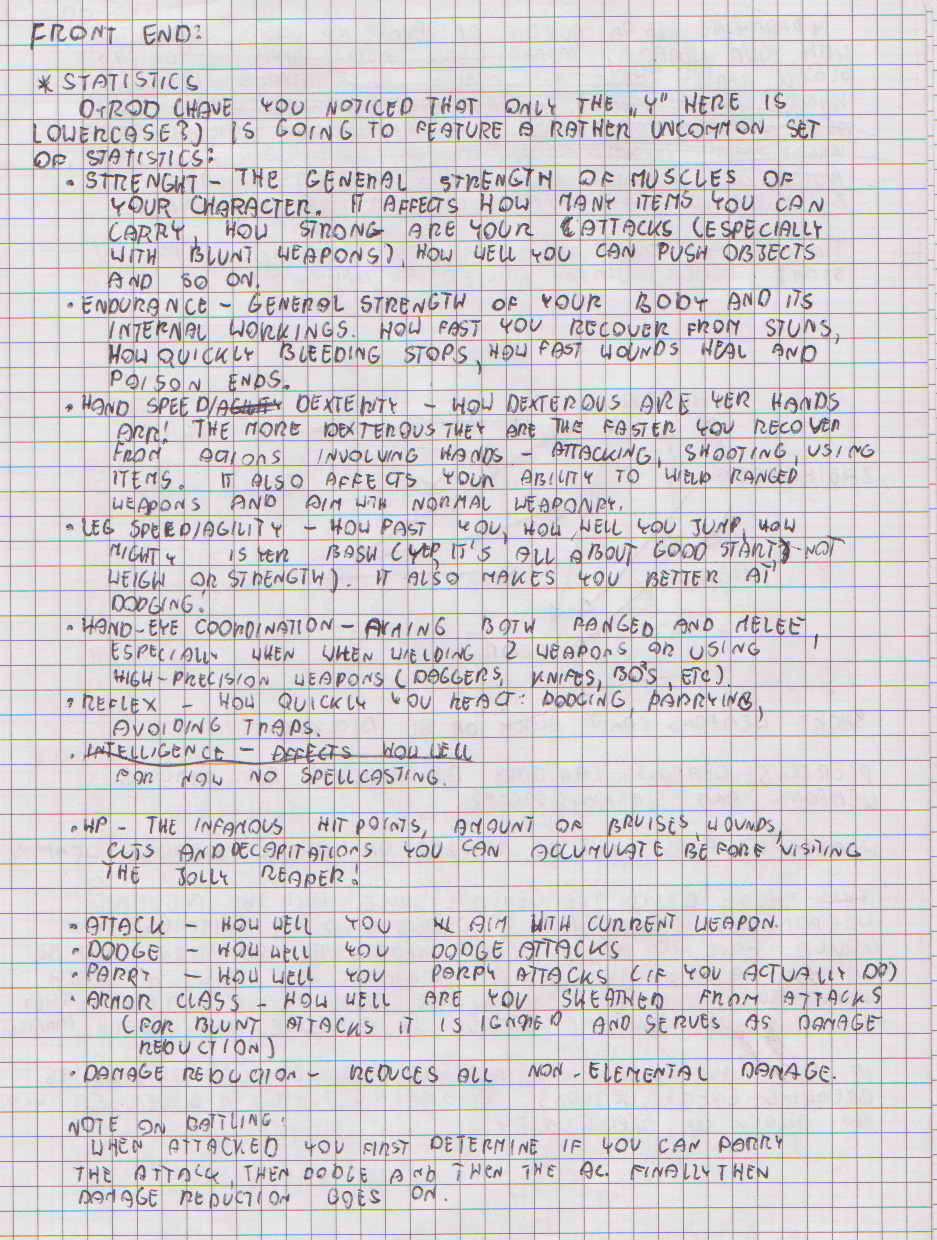 FRONT END:
* STATISTICS
OyROD (HAVE YOU NOTICED THAT ONLY THE „Y" HERE IS
LOWERCASE?) IS GOING TO FEATURE A RATHER UNCOMMON SET
OF STATISTICS:
• STRENGHT – THE GENERAL STRENGTH OF MUSCLES OF
YOUR CHARACTER. IT AFFECTS HOW MANY ITEMS YOU CAN
CARRY, HOW STRONG ARE YOUR ATTACKS (ESPECIALLY
WITH BLUNT WEAPONS), HOW WELL YOU CAN PUSH OBJECTS
AND SO ON.
• ENDURANCE – GENERAL STRENGTH OF YOUR BODY AND ITS
INTERNAL WORKINGS. HOW FAST YOU RECOVER FROM STUNS,
HOW QUICKLY BLEEDING STOPS, HOW FAST WOUNDS HEAL AND
POISON ENDS.
• HAND SPEED/AGILITY DEXTERITY – HOW DEXTEROUS ARE YER HANDS
ARR! THE MORE DEXTEROUS THEY ARE THE FASTER YOU RECOVER
FROM ACTIONS INVOLVING HANDS – ATTACKING, SHOOTING, USING
ITEMS. IT ALSO AFFECTS YOUR ABILITY TO WIELD RANGED
WEAPONS AND AIM WITH NORMAL WEAPONRY.
• LEG SPEED/AGILITY – HOW FAST YOU, HOW WELL YOU JUMP, HOW
MIGHTY IS YER BASH (YEP, IT'S ALL ABOUT GOOD START, NOT
WEIGH OR STRENGTH). IT ALSO MAKES YOU BETTER AT
DODGING!
• HAND-EYE COORDINATION – AIMING BOTH RANGED AND MELEE,
ESPECIALLY WHEN WHEN WIELDING 2 WEAPONS OR USING
HIGH-PRECISION WEAPONS (DAGGERS, KNIFES, BO'S, ETC).
• REFLEX – HOW QUICKLY YOU REACT: DODGING, PARRYING,
AVOIDING TRAPS.
• INTELLIGENCE – AFFECTS HOW WELL
FOR NOW NO SPELLCASTING.
• HP – THE INFAMOUS HIT POINTS, AMOUNT OF BRUISES, WOUNDS,
CUTS AND DECAPITATIONS YOU CAN ACCUMULATE BEFORE VISITING
THE JOLLY REAPER!
• ATTACK – HOW WELL YOU AIM WITH CURRENT WEAPON.
• DODGE – HOW WELL YOU DODGE ATTACKS
• PARRY – HOW WELL YOU PARRY ATTACKS (IF YOU ACTUALLY DO)
• ARMOR CLASS – HOW WELL ARE YOU SHEATHED FROM ATTACKS
(FOR BLUNT ATTACKS IT IS IGNORED AND SERVES AS DAMAGE
REDUCTION)
• DAMAGE REDUCTION – REDUCES ALL NON-ELEMENTAL DAMAGE.
NOTE ON BATTLING:
WHEN ATTACKED YOU FIRST DETERMINE IF YOU CAN PARRY
THE ATTACK, THEN DODGE AND THEN THE AC. FINALLY THEN
DAMAGE REDUCTION GOES ON.